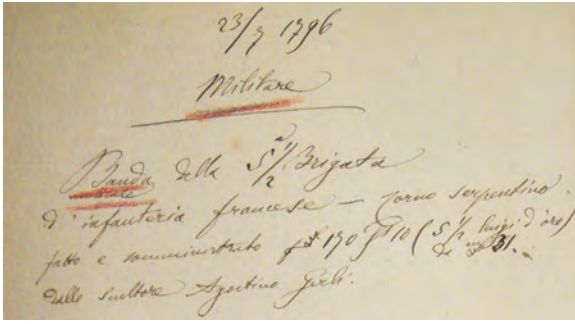 23/7 1796
Militare
Banda della 5ª 1/2 Brigata
d'infanteria francese — corno serpentino
fatto e somministrato 170 10 (5 1/2 luigi d'oro)
dallo scultore Agostino Gerli. da 31.